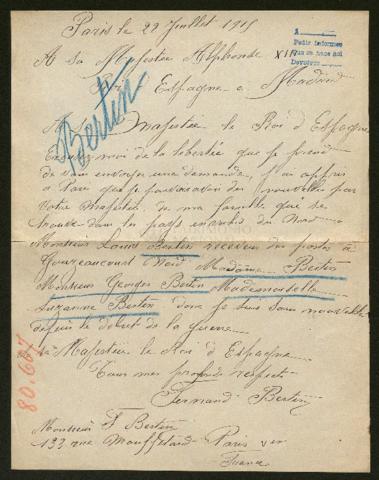 Paris le 29 Juillet 1915
A sa Majestée Alphonse XIII
Roi Espagne a Madrid
Bertin
Majestée le Roi d'Espagne
Excusez moi de la libertée que je prend
de vous envoyer une demande, j'ai appris
a savoir que je pouvais avoir des nouvelles par
votre Majestée de ma famille qui se
trouve dans les pays envahis du Nord
Monsieur Louis Bertin receveur des postes à
Gouzeaucourt (Nord) Madame Bertin
Monsieur Georges Bertin Mademoiselle
Suzanne Bertin dont je suis sans nouvelle
depuis le debut de la guerre
Sa Majestée le Roi d'Espagne
Tous mes profonds respect
Fernand Bertin
80.607
Monsieur F Bertin
133 rue Mouffetard Paris
France